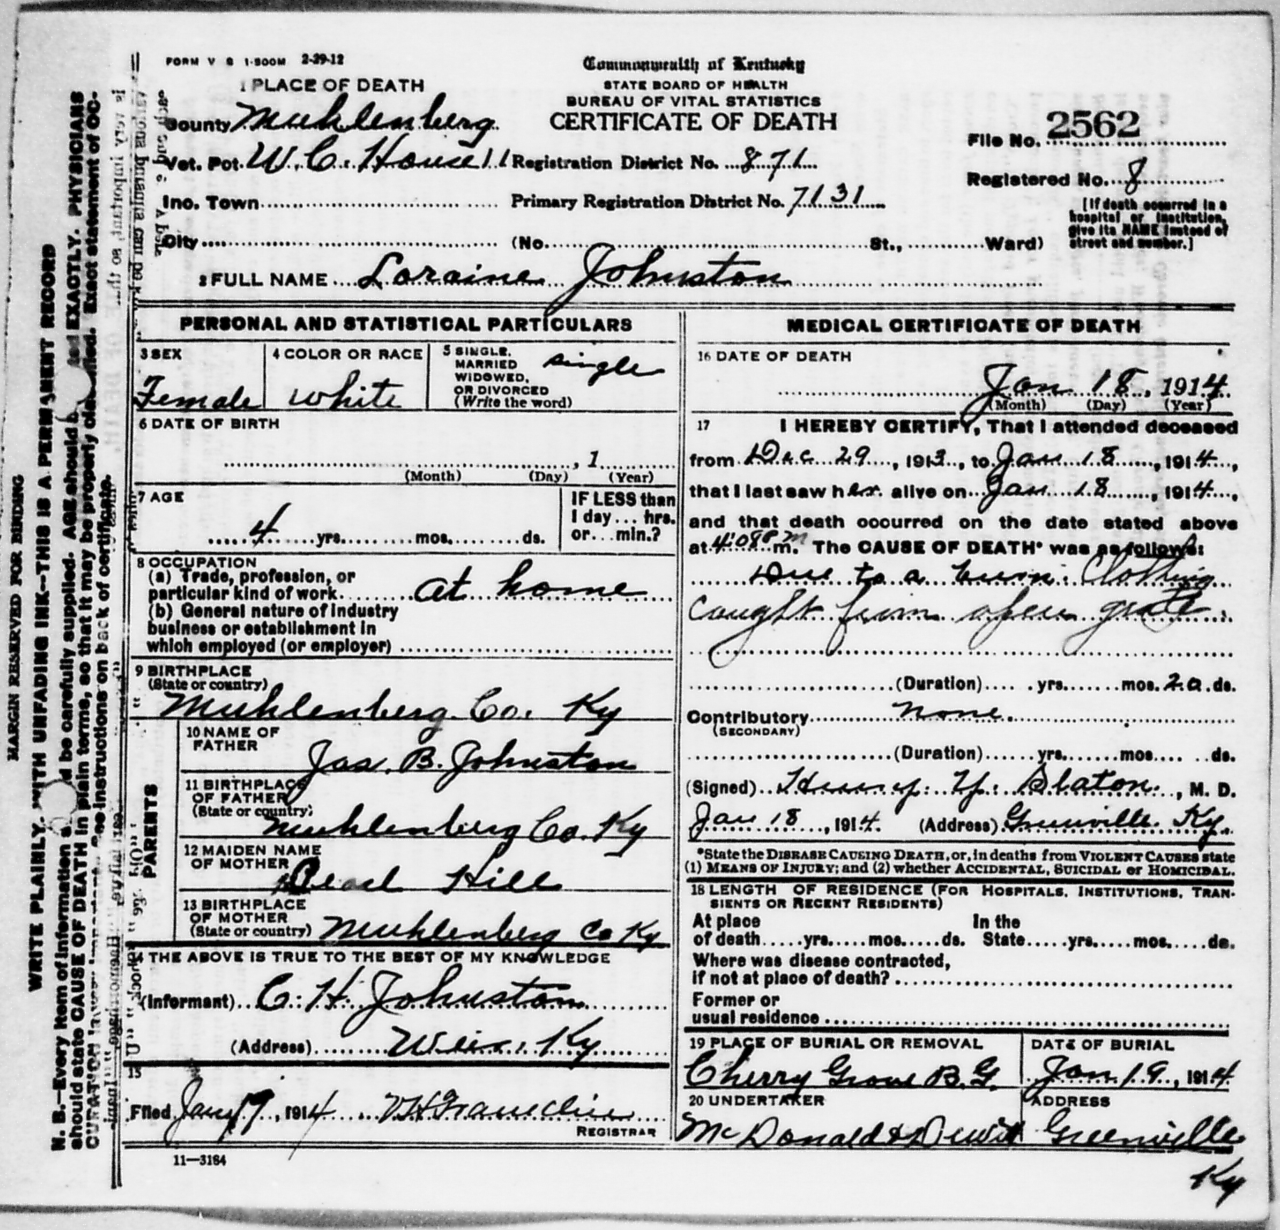 FORM V S 1-500M 2-29-12
Commonwealth of Kentucky
STATE BOARD OF HEALTH
BUREAU OF VITAL STATISTICS
CERTIFICATE OF DEATH
1 PLACE OF DEATH
County Muhlenberg
Vot. Pct. W. C. House 11 Registration District No. 871
Ino. Town Primary Registration District No. 7131
City (No. St., Ward)
File No. 2562
Registered No. 8
[If death occurred in a
hospital or institution,
give its NAME instead of
street and number.]
2 FULL NAME Loraine Johnston
PERSONAL AND STATISTICAL PARTICULARS
3 SEX
Female
4 COLOR OR RACE
white
5 SINGLE,
MARRIED
WIDOWED,
OR DIVORCED
(Write the word)
single
6 DATE OF BIRTH
, 1
(Month) (Day) (Year)
7 AGE
4 yrs. mos. ds.
IF LESS than
1 day... hrs.
or... min.?
8 OCCUPATION
(a) Trade, profession, or
particular kind of work at home
(b) General nature of industry
business or establishment in
which employed (or employer)
9 BIRTHPLACE
(State or country)
Muhlenberg Co. Ky
PARENTS
10 NAME OF
FATHER
Jas. B. Johnston
11 BIRTHPLACE
OF FATHER
(State or country)
Muhlenberg Co. Ky
12 MAIDEN NAME
OF MOTHER
Pearl Hill
13 BIRTHPLACE
OF MOTHER
(State or country) Muhlenberg Co Ky
14 THE ABOVE IS TRUE TO THE BEST OF MY KNOWLEDGE
(Informant) C. H. Johnston
(Address) Weir, Ky
15
Filed Jany 19, 1914
REGISTRAR
11—3184
MEDICAL CERTIFICATE OF DEATH
16 DATE OF DEATH
Jan 18, 1914
(Month) (Day) (Year)
17 I HEREBY CERTIFY, That I attended deceased
from Dec 29, 1913, to Jan 18, 1914,
that I last saw her alive on Jan 18, 1914,
and that death occurred on the date stated above
at m. The CAUSE OF DEATH* was as follows:
Due to a burn. Clothing
caught from open grate.
(Duration) yrs. mos. 20 ds.
Contributory none.
(SECONDARY)
(Duration) yrs. mos. ds.
(Signed) Henry Y. Slaton, M. D.
Jan 18, 1914. (Address) Greenville Ky.
*State the DISEASE CAUSING DEATH, or, in deaths from VIOLENT CAUSES state
(1) MEANS OF INJURY; and (2) whether ACCIDENTAL, SUICIDAL or HOMICIDAL.
18 LENGTH OF RESIDENCE (FOR HOSPITALS, INSTITUTIONS, TRAN-
SIENTS OR RECENT RESIDENTS)
At place In the
of death yrs. mos. ds. State yrs. mos. ds.
Where was disease contracted,
if not at place of death?
Former or
usual residence
19 PLACE OF BURIAL OR REMOVAL
Cherry Grove B.G.
DATE OF BURIAL
Jan 19, 1914
20 UNDERTAKER
McDonald & Dewitt
ADDRESS
Greenville
Ky
MARGIN RESERVED FOR BINDING
WRITE PLAINLY, WITH UNFADING INK—THIS IS A PERMANENT RECORD
N. B.—Every item of information should be carefully supplied. AGE should be stated EXACTLY. PHYSICIANS
should state CAUSE OF DEATH in plain terms, so that it may be properly classified. Exact statement of OC-
CUPATION is very important. See instructions on back of certificate.